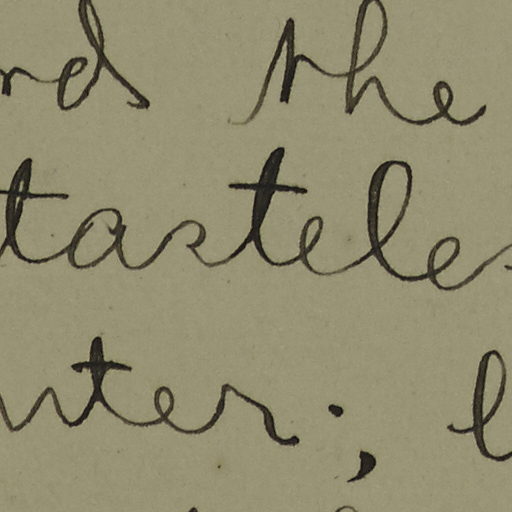 rds the
tasteles
nter; b